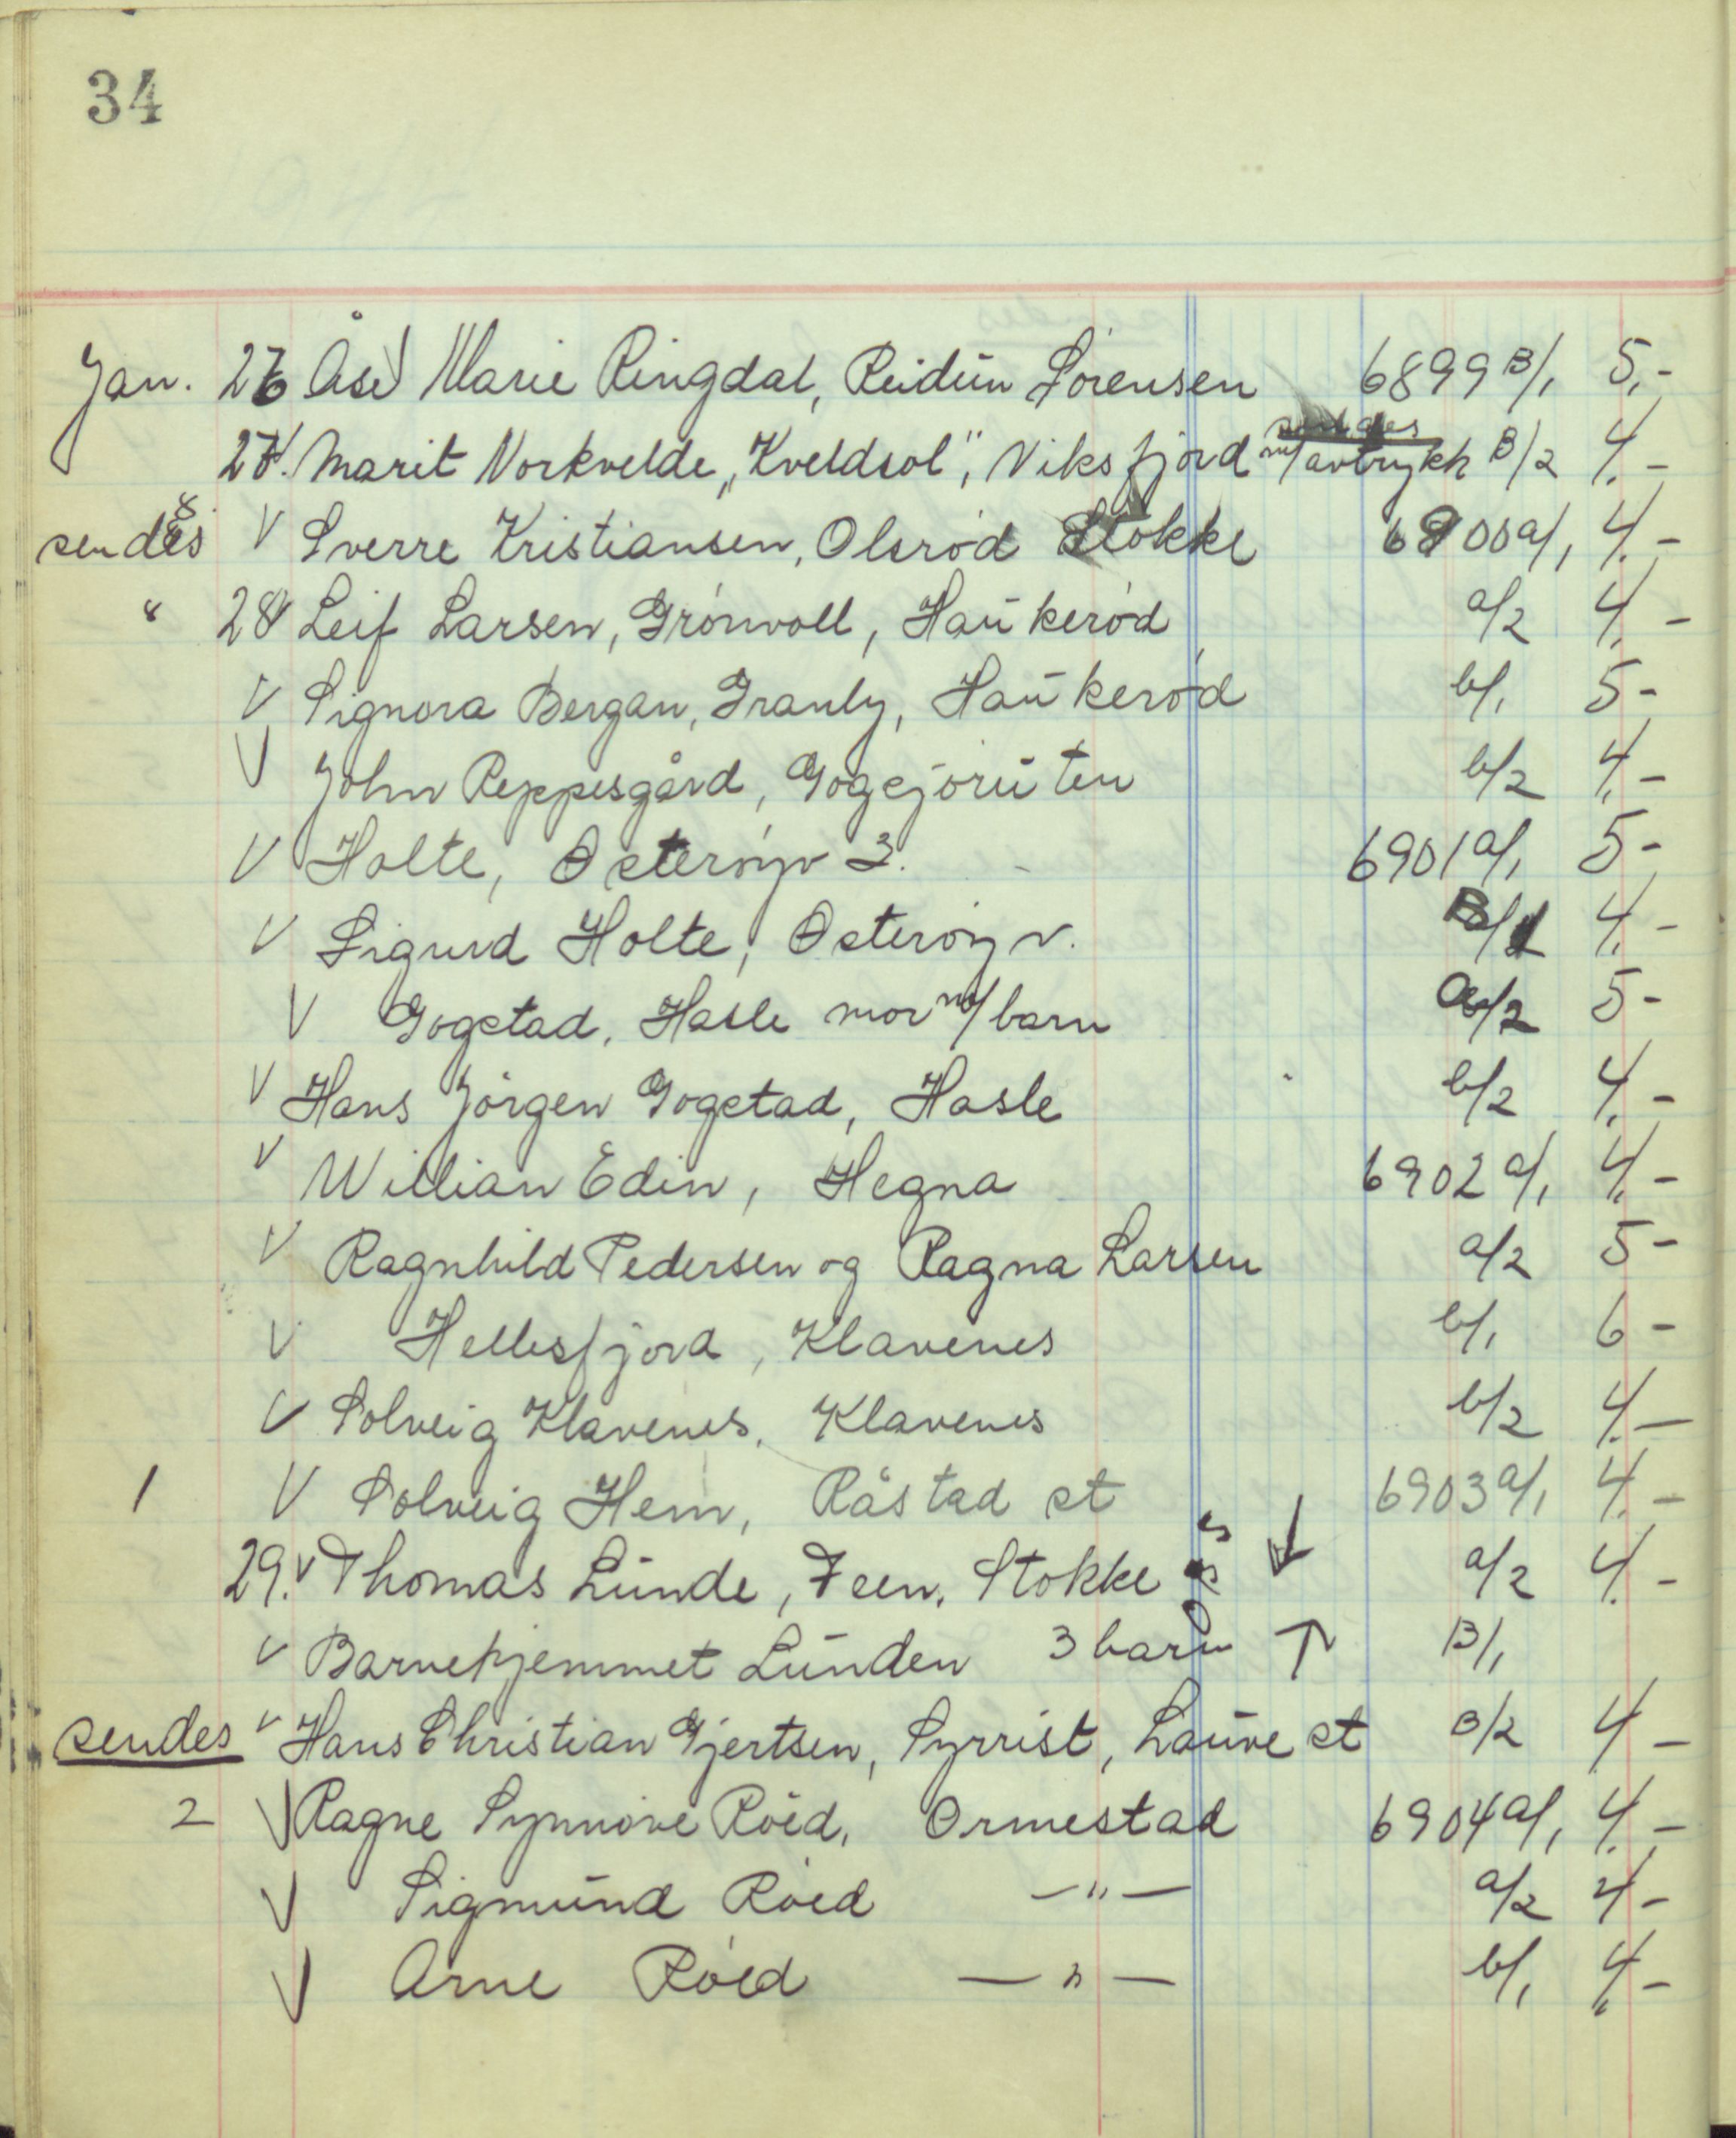 34
Jan. 26 Åse Marie Ringdal, Reidun Sørensen 6899 B/1 5,-
27. Marit Norkvelde, „Kveldsol", Viksfjord m/avtrykk B/2 4,-
sendes V Sverre Kristiansen, Olsrød Stokke 6900 a/1 4,-
" 28 Leif Larsen, Grønvoll, Haukerød a/2 4,-
V Signora Bergan, Granly, Haukerød b/1 5-
V John Reppesgård, Gogsjøruten b/2 4,-
V Holte, Østerøyv 3. 6901 a/1 5-
V Sigurd Holte, Østerøyv. B/1 4,-
V Gogstad, Hasle mor m/barn a/2 5-
V Hans Jörgen Gogstad, Hasle b/2 4,-
V Willian Edin, Hegna 6902 a/1 4,-
V Ragnhild Pedersen og Ragna Larsen a/2 5-
V Hellesfjord, Klavenes b/1 6-
V Solveig Klavenes, Klavenes b/2 4,-
1 V Solveig Hem, Råstad st 6903 a/1 4,-
29. V Thomas Lunde, Feen, Stokke ↓ a/2 4,-
V Barnehjemmet Lunden 3 barn ↑ B/1
sendes V Hans Christian Gjertsen, Syrrist, Lauve st B/2 4-
2 V Ragne Synnøve Röed, Ormestad 6904 a/1 4,-
V Sigmund Röed —"— a/2 4-
V Arne Röed —"— b/1 4,-